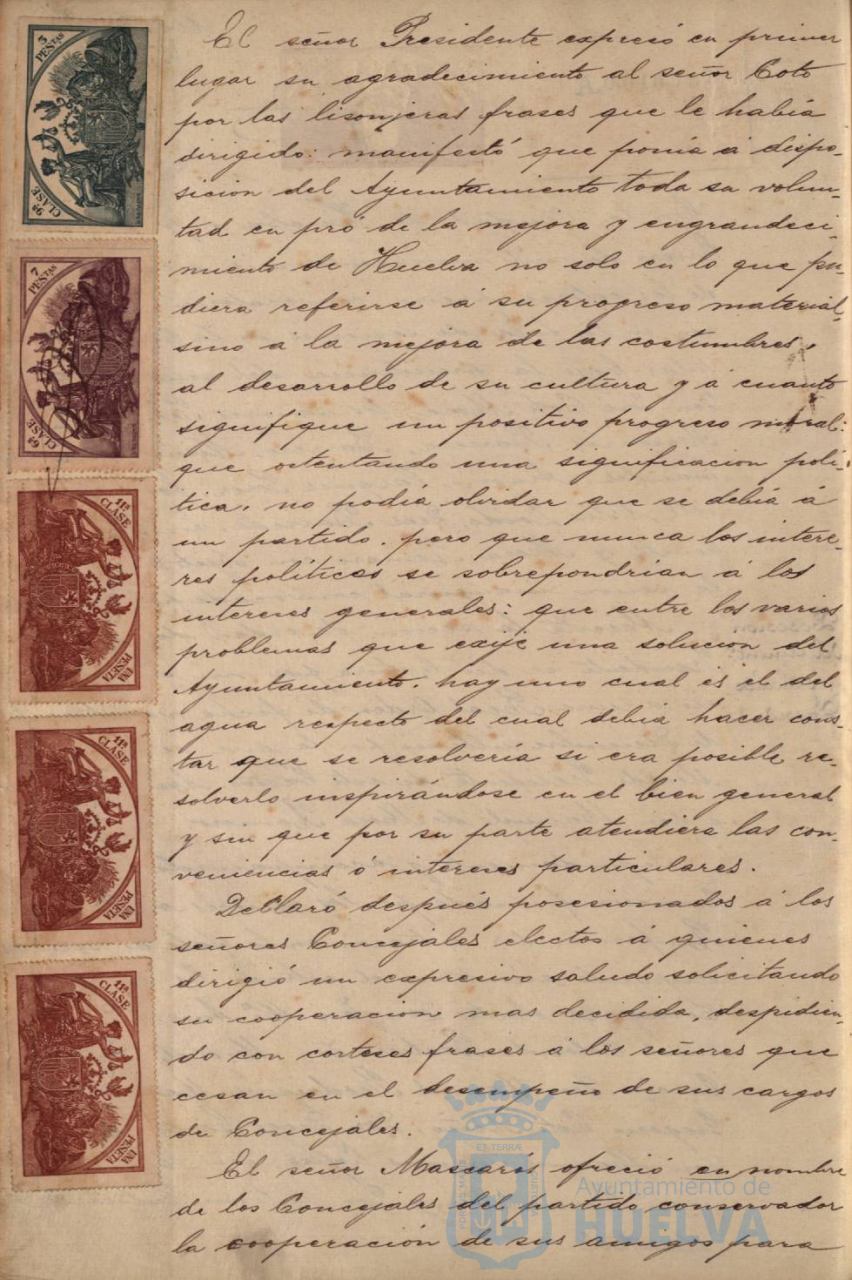 El señor Presidente expreció en primer
lugar su agradecimiento al señor Coto
por las lisonjeras frases que le había
dirigido: manifestó que ponía á dispo-
sicion del Ayuntamiento toda su volun-
tad en pró de la mejora y engrandeci-
miento de Huelva no solo en lo que pu-
diera referirse á su progreso material,
sino á la mejora de las costumbres,
al desarrollo de su cultura y á cuanto
signifique un positivo progreso moral:
que ostentando una significacion polí-
tica, no podía olvidar que se debía á
un partido, pero que nunca los intere-
res políticos se sobrepondrían á los
intereres generales: que entre los varios
problemas que exije una solucion del
Ayuntamiento, hay uno cual es el del
agua respecto del cual debia hacer cons-
tar que se resolvería si era posible re-
solverlo inspirándose en el bien general
y sin que por su parte atendiera las con-
veniencias ó intereres particulares.
Declaró después posesionados á los
señores Concejales electos á quienes
dirigió un expresivo saludo solicitando
su cooperacion mas decidida, despidien-
do con corteses frases á los señores que
cesan en el desempeño de sus cargos
de Concejales.
El señor Mascarós ofreció en nombre
de los Concejales del partido conservador
la cooperación de sus amigos para
5 PESTAS
9ª CLASE
7 PESTAS
6ª CLASE
11ª CLASE
UNA PESETA
11ª CLASE
UNA PESETA
11ª CLASE
UNA PESETA
Ayuntamiento de
HUELVA